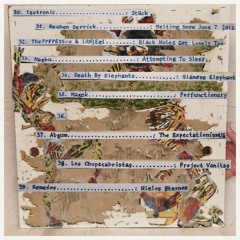 30. Igetronic...............: Stück
31. Reuben Derrick..........: Melting Snow June 7 2012
32. ThePEPEPEice & IAN)Eel....: Black Holes Get Lonely Too
33. Magku..............: Attempting To Sleep
34. Death By Elephants.........: Siamese Elephant
35. Magck................: Perfunctionary
36.
37. Abgum.................: The ExpectationismUS
38. Los Chupacabristas..........: Project Vanitas
39. Remedos...............: Hielos Eternos